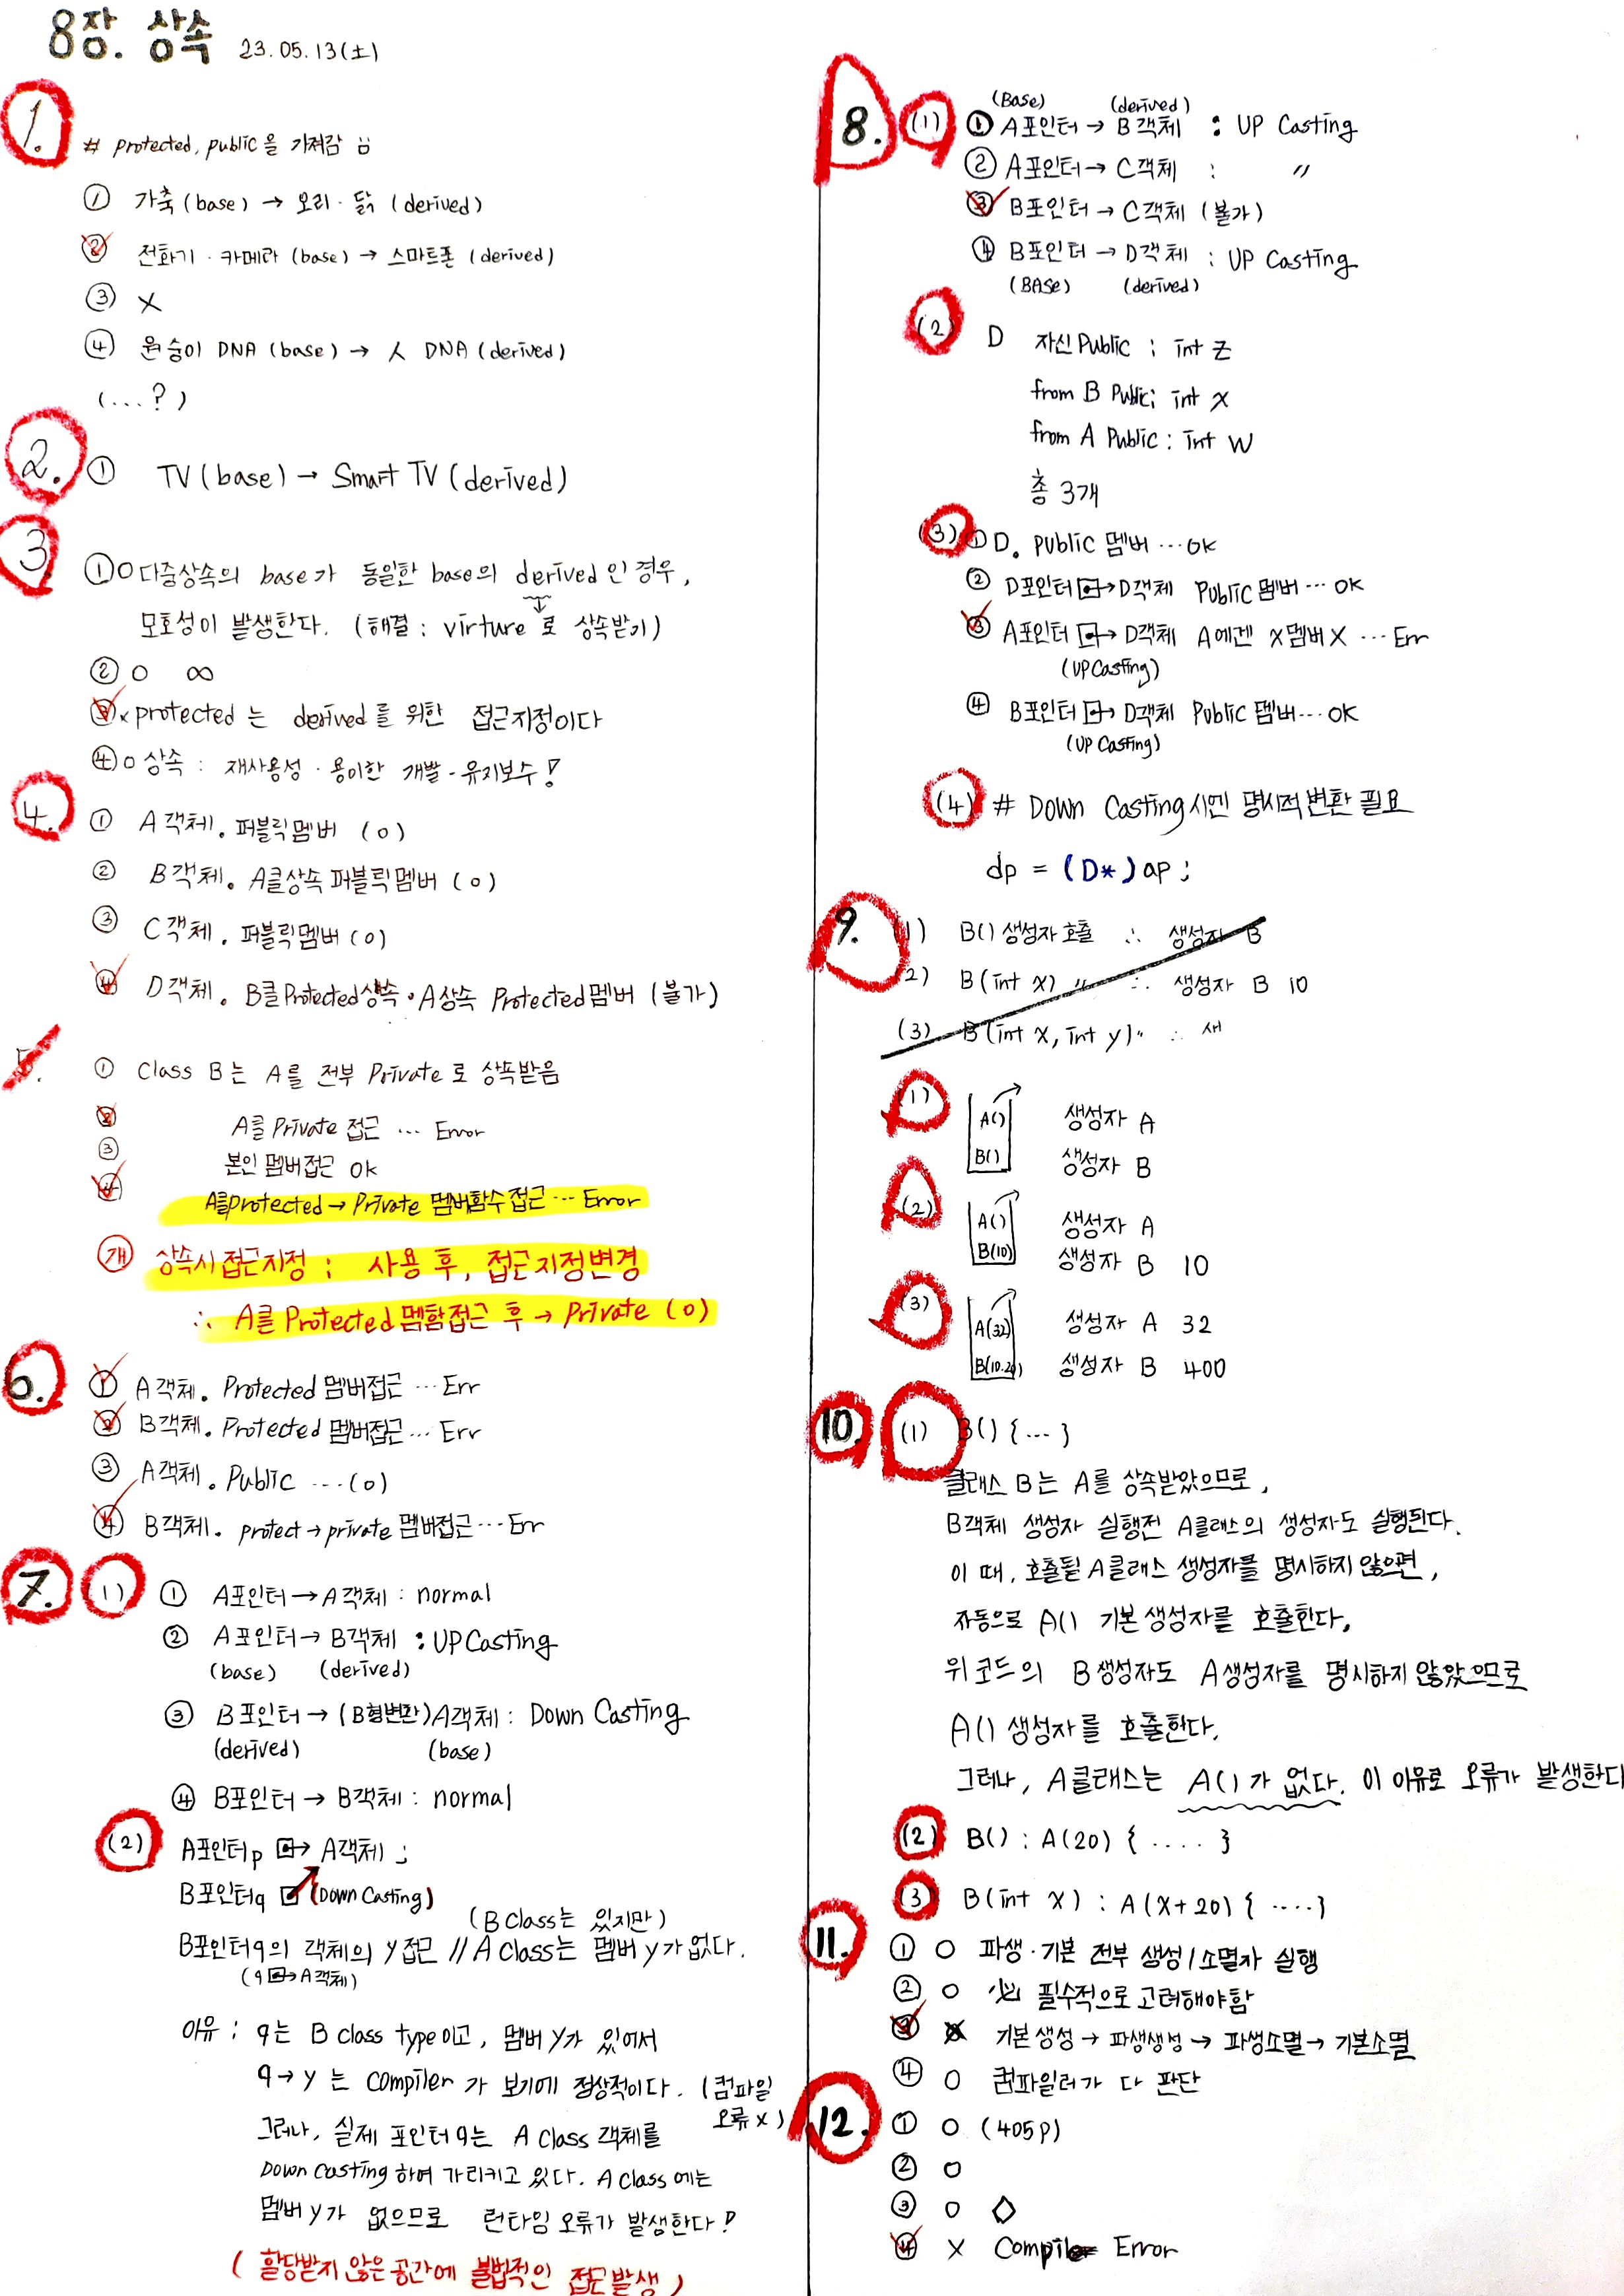 8장. 상속 23.05.13(土)
1.
# protected, public을 가져감
① 가축 (base) → 오리 · 닭 (derived)
② 전화기 · 카메라 (base) → 스마트폰 (derived)
③ X
④ 원숭이 DNA (base) → 人 DNA (derived)
(...?)
2. ① TV (base) → Smart TV (derived)
3
① O 다중상속의 base가 동일한 base의 derived인 경우,
모호성이 발생한다. (해결 : virture로 상속받기)
② O ∞
③ x protected는 derived를 위한 접근지정이다
④ O 상속 : 재사용성 · 용이한 개발 - 유지보수!
4. ① A객체. 퍼블릭멤버 (O)
② B객체. A클상속 퍼블릭멤버 (O)
③ C객체. 퍼블릭멤버 (O)
④ D객체. B클Protected상속 · A상속 Protected멤버 (불가)
5. ① Class B는 A를 전부 Private로 상속받음
② A클 Private 접근 ... Error
③ 본인 멤버접근 OK
④ A클protected → Private 멤버함수접근 ... Error
개 상속시 접근지정 : 사용 후, 접근지정변경
∴ A클 Protected멤함접근 후 → Private (O)
6. ① A객체. Protected 멤버접근 ... Err
② B객체. Protected 멤버접근 ... Err
③ A객체. Public ...(O)
④ B객체. protect → private 멤버접근 ... Err
7. (1) ① A포인터 → A객체 : normal
② A포인터 → B객체 : UP Casting
(base) (derived)
③ B포인터 → (B형변환)A객체 : Down Casting
(derived) (base)
④ B포인터 → B객체 : normal
(2) A포인터p → A객체 ;
B포인터q (Down Casting)
(B Class는 있지만)
B포인터q의 객체의 y접근 // A Class는 멤버 y가 없다.
(q → A객체)
이유 : q는 B class type이고, 멤버 y가 있어서
q → y는 compiler가 보기에 정상적이다. (컴파일
오류 x)
그러나, 실제 포인터 q는 A class 객체를
Down casting하여 가리키고 있다. A class에는
멤버 y가 없으므로 런타임 오류가 발생한다!
( 할당받지 않은 공간에 불법적인 접근발생 )
8. (1)
(Base) (derived)
① A포인터 → B객체 : UP Casting
② A포인터 → C객체 : 〃
③ B포인터 → C객체 (불가)
④ B포인터 → D객체 : UP Casting
(BASe) (derived)
(2) D 자신Public : int z
from B Public: int x
from A Public : int w
총 3개
(3) ① D. public 멤버 ... OK
② D포인터 → D객체 Public멤버 ... OK
③ A포인터 → D객체 A에겐 x멤버 X ... Err
(UP Casting)
④ B포인터 → D객체 Public 멤버 ... OK
(UP Casting)
(4) # Down Casting시엔 명시적변환 필요
dp = (D*) ap ;
9. (1) B() 생성자 호출 ∴ 생성자 B
(2) B (int x) 〃 ∴ 생성자 B 10
(3) B (int x, int y) 〃 ∴ 새
(1)
A() 생성자 A
B() 생성자 B
(2)
A() 생성자 A
B(10) 생성자 B 10
(3)
A(32) 생성자 A 32
B(10.20) 생성자 B 400
10. (1) B() {...}
클래스 B는 A를 상속받았으므로,
B객체 생성자 실행전 A클래스의 생성자도 실행된다.
이 때, 호출될 A클래스 생성자를 명시하지 않으면,
자동으로 A() 기본생성자를 호출한다.
위 코드의 B생성자도 A생성자를 명시하지 않았으므로
A() 생성자를 호출한다.
그러나, A클래스는 A()가 없다. 이 이유로 오류가 발생한다
(2) B() : A(20) { .... }
(3) B(int x) : A(x+20) { .... }
11. ① O 파생 · 기본 전부 생성/소멸자 실행
② O 必 필수적으로 고려해야함
③ X 기본생성 → 파생생성 → 파생소멸 → 기본소멸
④ O 컴파일러가 다 판단
12. ① O (405p)
② O
③ O ◇
④ X Compile Error